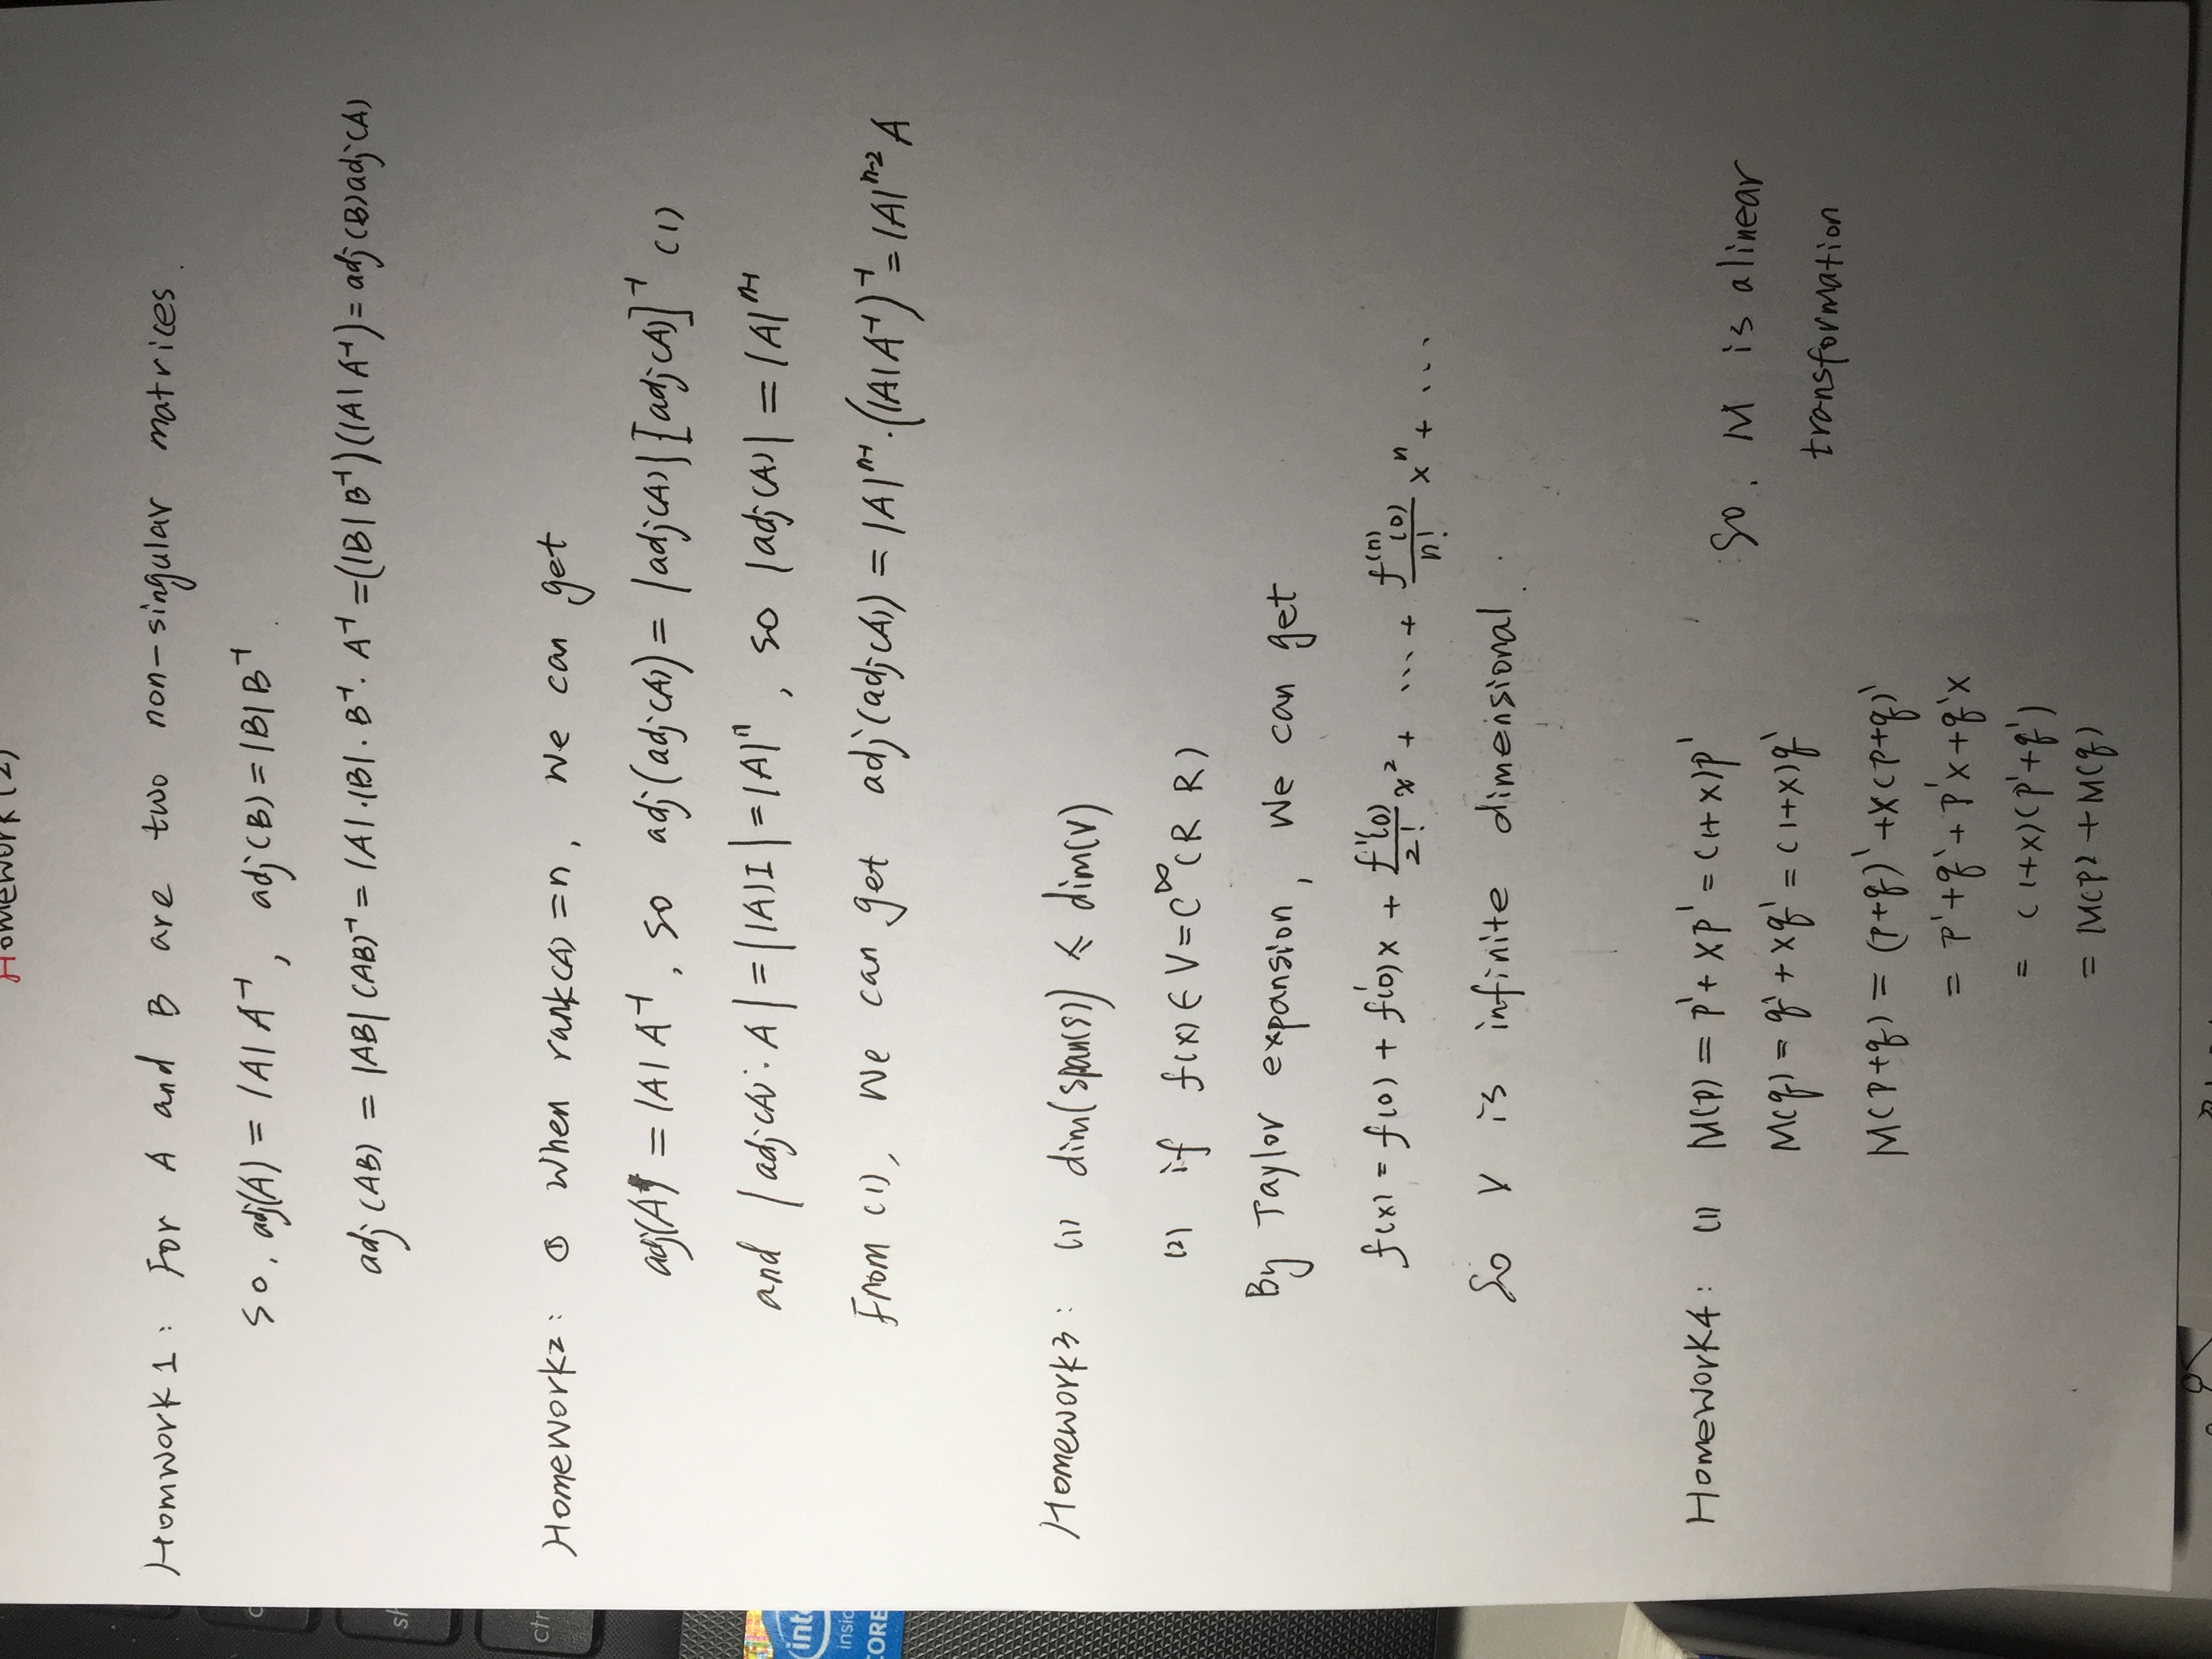 Homework (2)
Homwork 1: For A and B are two non-singular matrices.
So, adj(A) = |A| A⁻¹, adj(B) = |B| B⁻¹.
adj(AB) = |AB| (AB)⁻¹ = |A|·|B|· B⁻¹· A⁻¹ = (|B| B⁻¹)(|A| A⁻¹) = adj(B)adj(A)
Homework2: ① When rank(A) = n, we can get
adj(A) = |A| A⁻¹, so adj(adj(A)) = |adj(A)| [adj(A)]⁻¹ (1)
and |adj(A)· A| = ||A|I| = |A|ⁿ, so |adj(A)| = |A|ⁿ⁻¹
From (1), we can get adj(adj(A)) = |A|ⁿ⁻¹·(|A| A⁻¹)⁻¹ = |A|ⁿ⁻² A
Homework3: (1) dim(span(S)) ≤ dim(V)
(2) if f(x) ∈ V = C^∞(R R)
By Taylor expansion, we can get
f(x) = f(0) + f'(0)x + f''(0)/2! x² + ... + f⁽ⁿ⁾(0)/n! xⁿ + ...
So V is infinite dimensional.
Homework4: (1) M(p) = p' + xp' = (1+x)p'
M(q) = q' + xq' = (1+x)q'
M(p+q) = (p+q)' + x(p+q)'
= p' + q' + p'x + q'x
= (1+x)(p'+q')
= M(p) + M(q)
So, M is a linear
transformation
ctr
int
insid
CORE